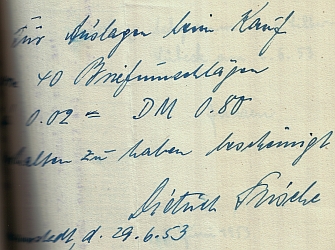 für Auslagen beim Kauf
40 Briefumschlägen
0.02 = DM 0.80
halten zu haben bescheinigt
Dietrich
d. 29.6.53